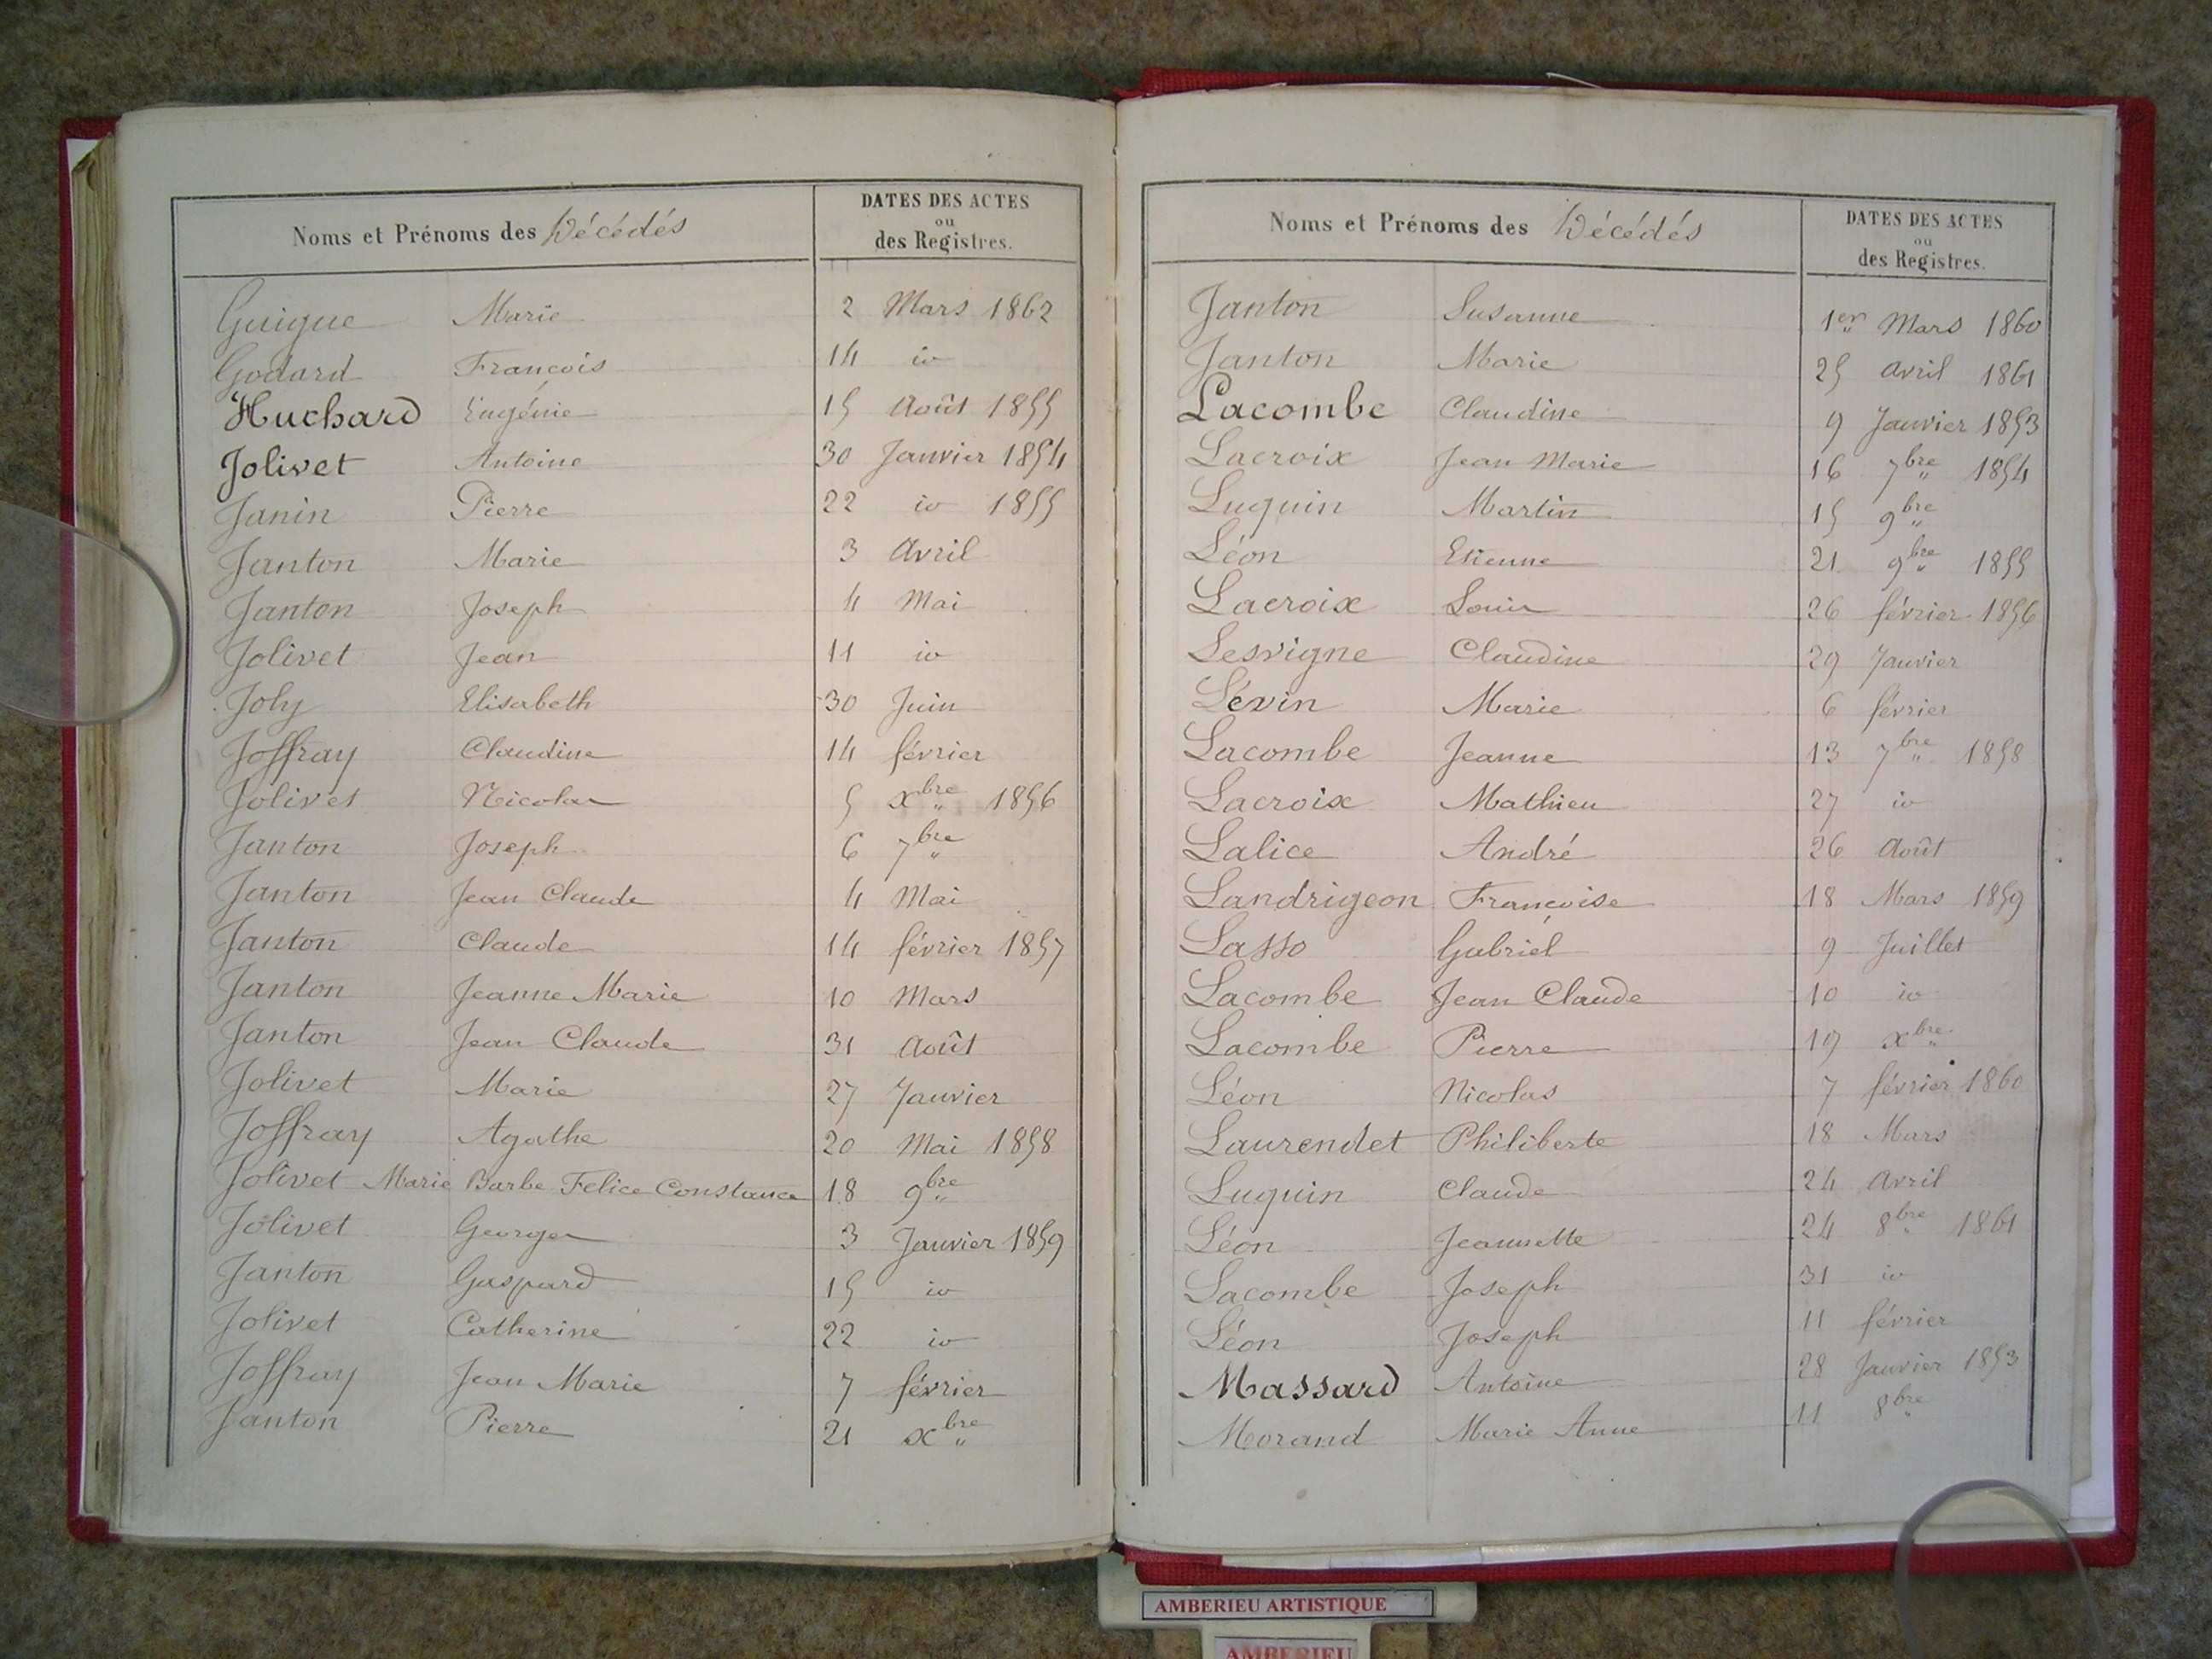 Noms et Prénoms des Décédés
DATES DES ACTES
ou
des Registres.
Guigue Marie 2 Mars 1862
Godard Francois 14 id
Huchard Eugénie 15 Août 1855
Jolivet Antoine 30 Janvier 1854
Janin Pierre 22 id 1855
Janton Marie 3 Avril
Janton Joseph 4 Mai
Jolivet Jean 11 id
Joly Elisabeth 30 Juin
Joffray Claudine 14 février
Jolivet Nicolas 5 xbre 1856
Janton Joseph 6 7bre
Janton Jean Claude 4 Mai
Janton Claude 14 février 1857
Janton Jeanne Marie 10 Mars
Janton Jean Claude 31 Août
Jolivet Marie 27 Janvier
Joffray Agathe 20 Mai 1858
Jolivet Marie Barbe Felice Constance 18 9bre
Jolivet Georges 3 Janvier 1859
Janton Gaspard 15 id
Jolivet Catherine 22 id
Joffray Jean Marie 7 février
Janton Pierre 21 xbre
Noms et Prénoms des Décédés
DATES DES ACTES
ou
des Registres.
Janton Susanne 1er Mars 1860
Janton Marie 25 Avril 1861
Lacombe Claudine 9 Janvier 1853
Lacroix Jean Marie 16 7bre 1854
Luquin Martin 15 9bre
Léon Etienne 21 9bre 1855
Lacroix Louis 26 février 1856
Lesvigne Claudine 29 Janvier
Lévin Marie 6 février
Lacombe Jeanne 13 7bre 1858
Lacroix Mathieu 27 id
Lalice André 26 Août
Landrigeon Françoise 18 Mars 1859
Lasso Gabriel 9 Juillet
Lacombe Jean Claude 10 id
Lacombe Pierre 19 xbre
Léon Nicolas 7 février 1860
Laurendet Philiberte 18 Mars
Luquin Claude 24 Avril
Léon Jeannette 24 8bre 1861
Lacombe Joseph 31 id
Léon Joseph 11 février
Massard Antoine 28 Janvier 1853
Morand Marie Anne 11 8bre
AMBERIEU ARTISTIQUE
AMBERIEU